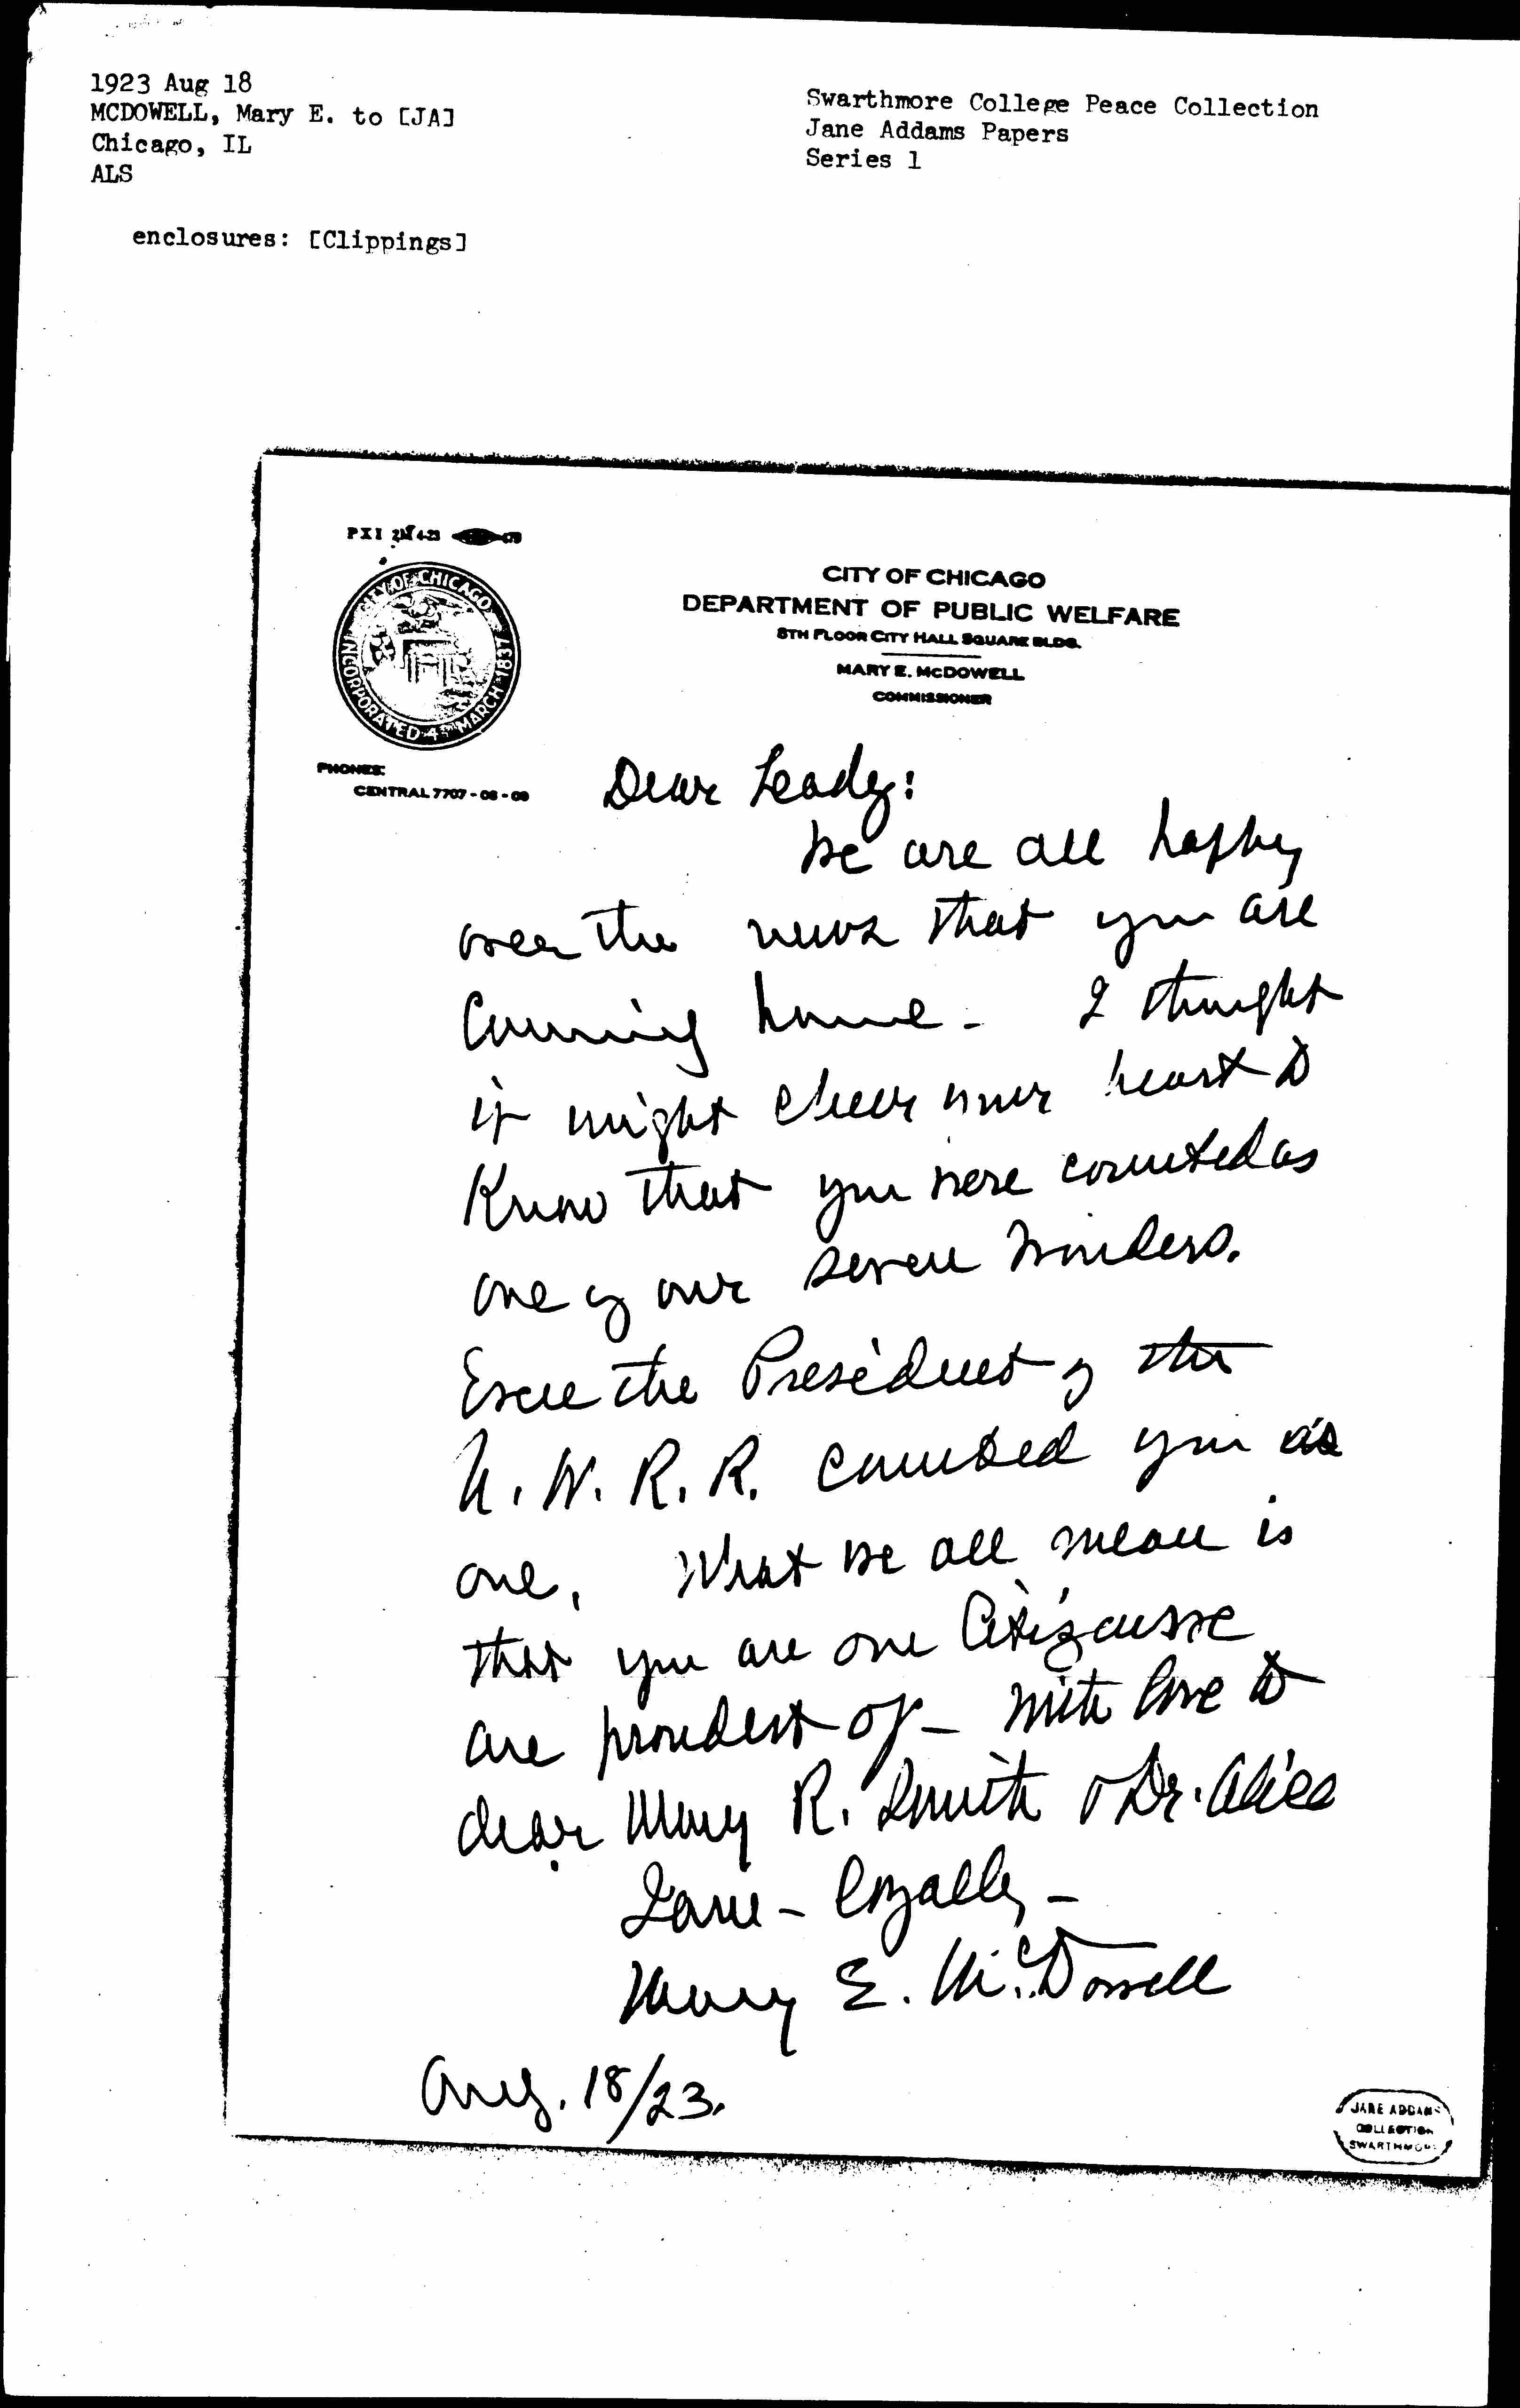 1923 Aug 18
MCDOWELL, Mary E. to [JA]
Chicago, IL
ALS
enclosures: [Clippings]
Swarthmore College Peace Collection
Jane Addams Papers
Series 1
PXI 2M 4-23
CITY OF CHICAGO INCORPORATED 4TH MARCH 1837
CITY OF CHICAGO
DEPARTMENT OF PUBLIC WELFARE
8TH FLOOR CITY HALL SQUARE BLDG.
MARY E. McDOWELL
COMMISSIONER
PHONES:
CENTRAL 7707-08-09
Dear Leady:
We are all happy
over the news that you are
Coming home - I thought
it might cheer your heart to
Know that you were counted as
one of our seven wonders.
Even the President of the
N. W. R. R. counted you as
one. What we all mean is
that you are one Citizen we
are proudest of - with love to
dear Mary R. Smith & Dr. Alice
Loyally -
Mary E. McDowell
Aug. 18/23.
JANE ADDAMS
COLLECTION
SWARTHMORE